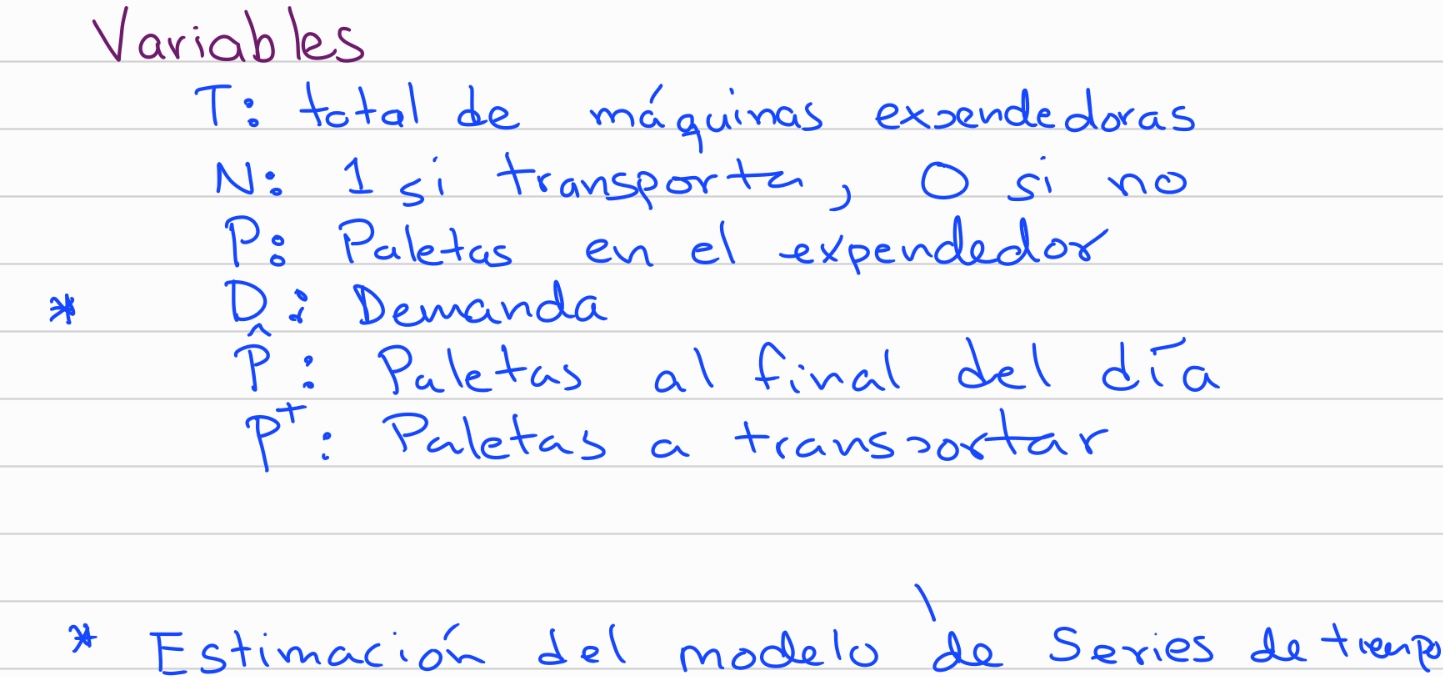 Variables
T: total de máquinas expendedoras
N: 1 si transporta, 0 si no
P: Paletas en el expendedor
* D: Demanda
P̂: Paletas al final del día
P⁺: Paletas a transportar
* Estimación del modelo de Series de tiempo